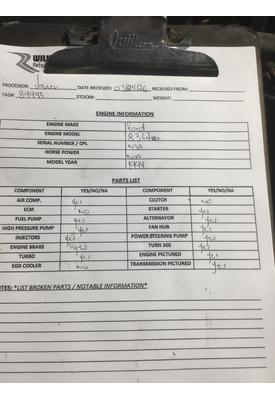 Quill.com
WILL
PROCESSOR: DATE RECEIVED: RECEIVED FROM:
TAG#: 89993 STOCK#: WEIGHT:
ENGINE INFORMATION
ENGINE MAKE Ford
ENGINE MODEL 8.3 Liter
SERIAL NUMBER / CPL N/A
HORSE POWER N/A
MODEL YEAR 1994
PARTS LIST
COMPONENT YES/NO/NA COMPONENT YES/NO/NA
AIR COMP. yes CLUTCH NO
ECM NO STARTER yes
FUEL PUMP yes ALTERNATOR yes
HIGH PRESSURE PUMP yes FAN HUB yes
INJECTORS yes POWER STEERING PUMP yes
ENGINE BRAKE yes TURN 360 yes
TURBO yes ENGINE PICTURED yes
EGR COOLER NO TRANSMISSION PICTURED yes
OTES: *LIST BROKEN PARTS / NOTABLE INFORMATION*